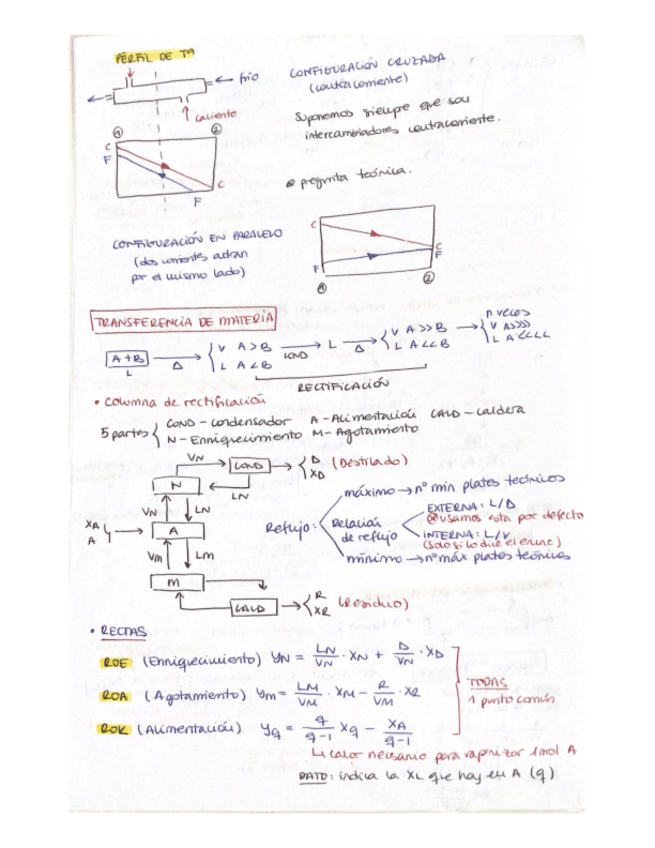 PERFIL DE Tª
← frío
caliente
① ②
C
F
C
F
CONFIGURACIÓN CRUZADA
(contracorriente)
Suponemos siempre que son
intercambiadores contracorriente.
pregunta teórica.
CONFIGURACIÓN EN PARALELO
(dos corrientes entran
por el mismo lado)
C
C
F
F
① ②
TRANSFERENCIA DE MATERIA
A+B → { V A>B → L → { V A>>B → n veces { V A>>>>
L Δ L A<B COND Δ L A<<B L A<<<<
RECTIFICACIÓN
• Columna de rectificación
5 partes { COND - condensador A - Alimentación CALD - caldera
N - Enriquecimiento M - Agotamiento
VN → COND → { D XD (Destilado)
N
LN
VN LN
XA
A
A
Vm Lm
M
CALD → { R XR (Residuo)
Reflujo:
máximo → nº min platos teóricos
Relación de reflujo
EXTERNA: L/D
⊗ usamos esta por defecto
INTERNA: L/V
(Solo si lo dice el enunc)
mínimo → nº máx platos teóricos
• RECTAS
ROE (Enriquecimiento) yN = LN/VN · XN + D/VN · XD
ROA (Agotamiento) ym = LM/VM · XM − R/VM · XR
ROK (Alimentación) yq = q/q-1 Xq − XA/q-1
TODAS
1 punto común
↳ calor necesario para vaporizar 1mol A
DATO: indica la XL que hay en A (q)